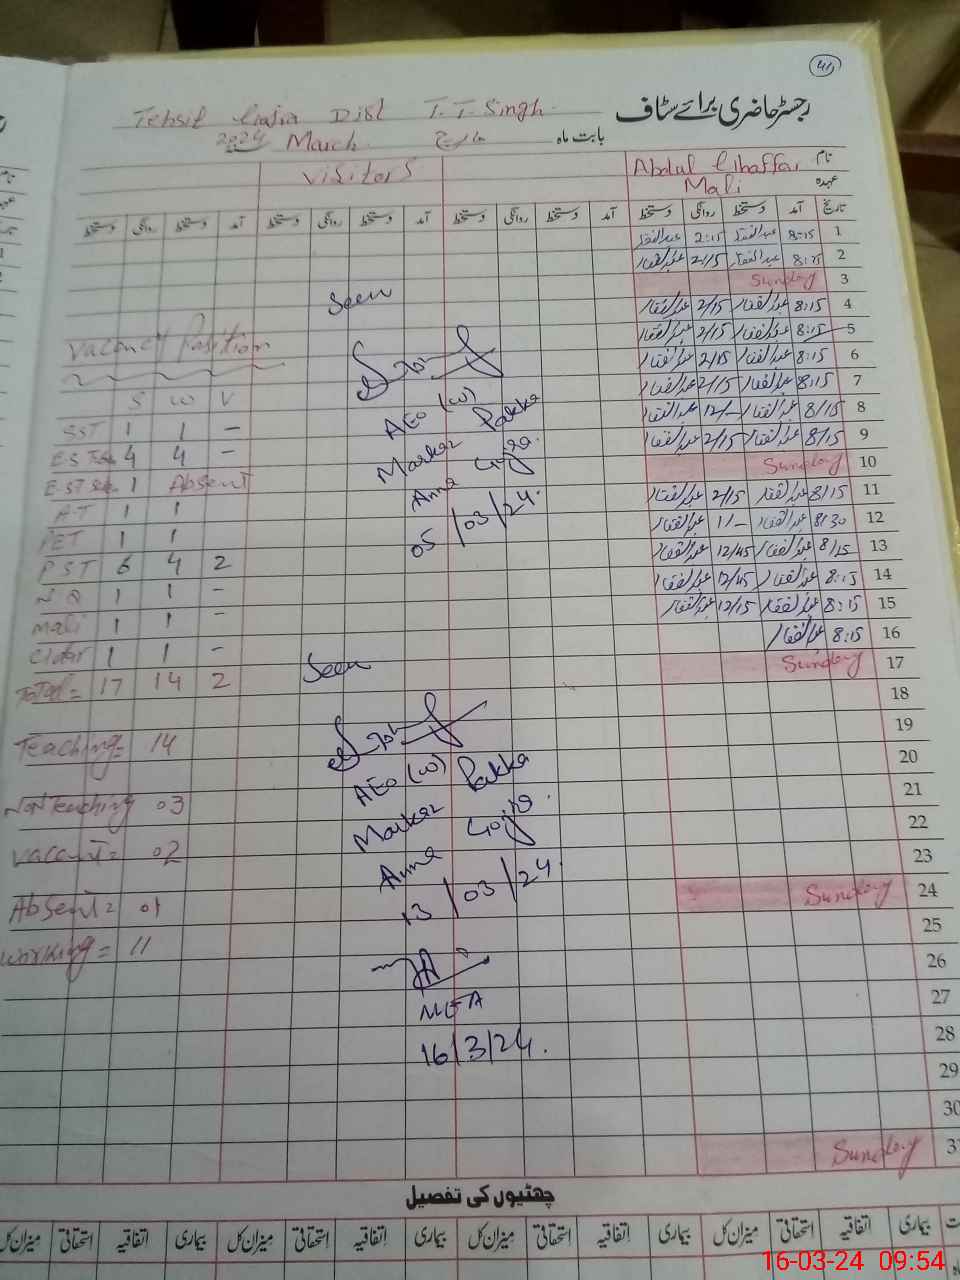 41
رجسٹر حاضری برائے سٹاف
Tehsil Gojra Dist T.T.Singh.
بابت ماہ مارچ March 2024
نام Abdul Ghaffar Visitors
عہدہ Mali
تاریخ آمد دستخط روانگی دستخط آمد دستخط روانگی دستخط آمد دستخط روانگی دستخط آمد دستخط روانگی دستخط
1 8:15 عبدالغفار 2:15 عبدالغفار
2 8:15 عبدالغفار 2/15 عبدالغفار
3 Sunday
4 8:15 عبدالغفار 2/15 عبدالغفار
5 8:15 عبدالغفار 2/15 عبدالغفار
6 8:15 عبدالغفار 2/15 عبدالغفار
7 8:15 عبدالغفار 2/15 عبدالغفار
8 8/15 عبدالغفار 12/- عبدالغفار
9 8/15 عبدالغفار 2/15 عبدالغفار
10 Sunday
11 8/15 عبدالغفار 2/15 عبدالغفار
12 8/30 عبدالغفار 1/- عبدالغفار
13 8/15 عبدالغفار 12/45 عبدالغفار
14 8:15 عبدالغفار 12/45 عبدالغفار
15 8:15 عبدالغفار 12/15 عبدالغفار
16 8:15 عبدالغفار
17 Sunday
18
19
20
21
22
23
24 Sunday
25
26
27
28
29
30
31 Sunday
Seen
AEO (W)
Markaz Pakka
Anna Gojra.
05/03/24.
Seen
AEO (W)
Markaz Pakka
Anna Gojra.
13/03/24.
MEA
16/3/24.
Vacancy Position
S W V
SST 1 1 -
E.S.T 4 4 -
E.ST 1 Absent
A.T 1 1
PET 1 1
PST 6 4 2
N.Q 1 1 -
Mali 1 1 -
C/dar 1 1 -
Total = 17 14 2
Teaching = 14
Non Teaching 03
Vacant = 02
Absent = 01
Working = 11
چھٹیوں کی تفصیل
بیماری اتفاقیہ استحقاقی میزان کل بیماری اتفاقیہ استحقاقی میزان کل بیماری اتفاقیہ استحقاقی میزان کل بیماری اتفاقیہ استحقاقی میزان کل
16-03-24 09:54